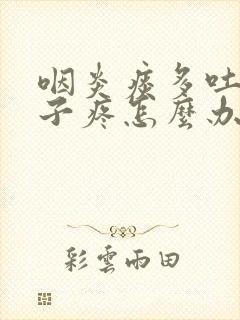 咽炎痰多吐
子疼怎麼办
彩雲雨田